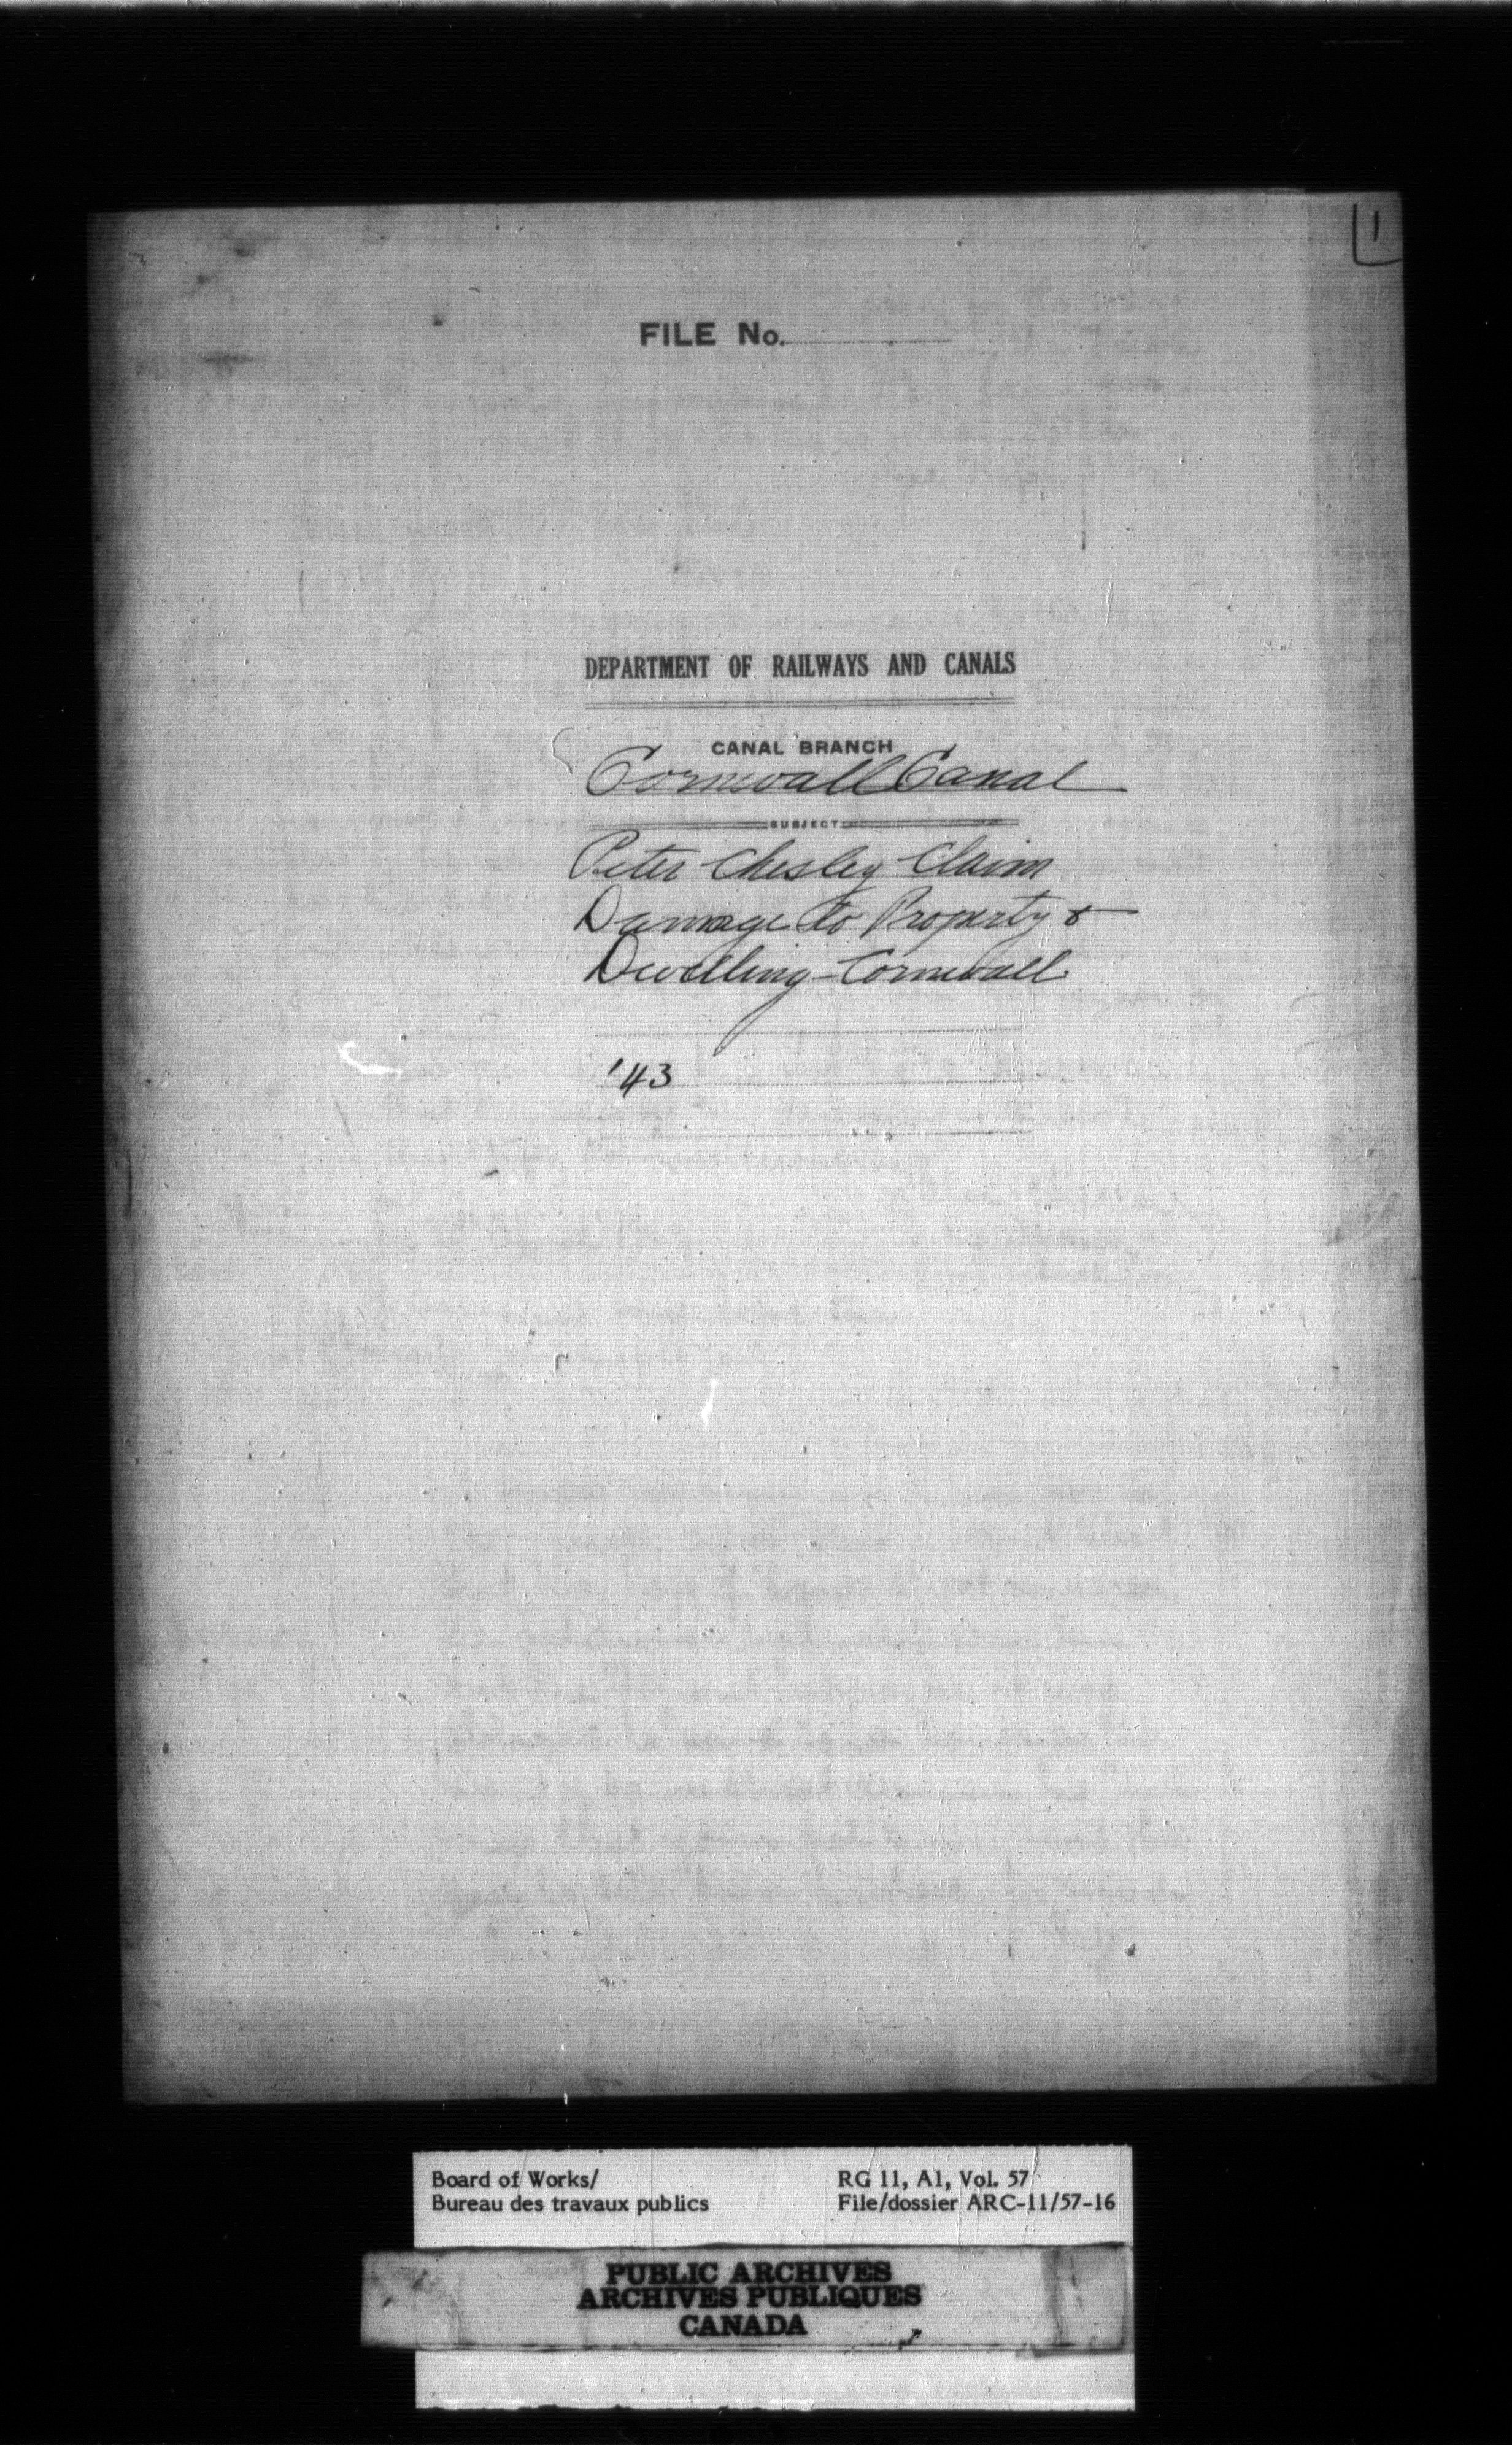 1
FILE No.
DEPARTMENT OF RAILWAYS AND CANALS
CANAL BRANCH
Cornwall Canal
SUBJECT
Peter Chesley Claim
Damage to Property &
Dwelling - Cornwall
'43
Board of Works/
Bureau des travaux publics
RG 11, A1, Vol. 57
File/dossier ARC-11/57-16
PUBLIC ARCHIVES
ARCHIVES PUBLIQUES
CANADA